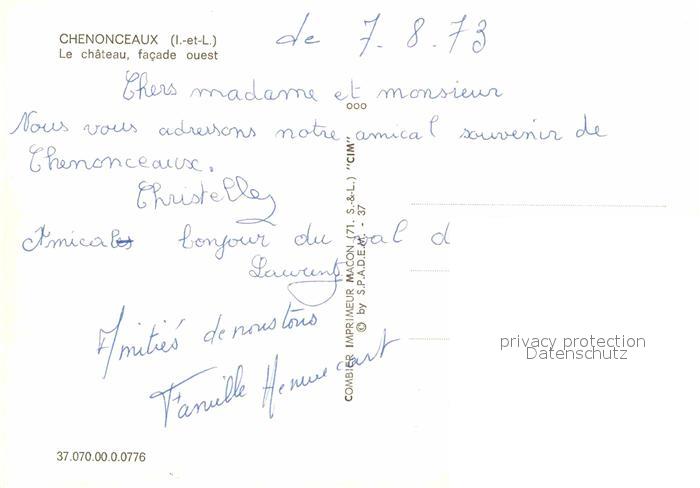 CHENONCEAUX (I.-et-L.)
Le château, façade ouest
de 7.8.73
Chers madame et monsieur
Nous vous adressons notre amical souvenir de
Chenonceaux.
Christelle
Amicales bonjour du val d
Laurent
Amitiés de nous tous
Famille
COMBIER IMPRIMEUR MACON (71. S.-&-L.) "CIM"
© by S.P.A.D.E.M. - 37
privacy protection
Datenschutz
37.070.00.0.0776